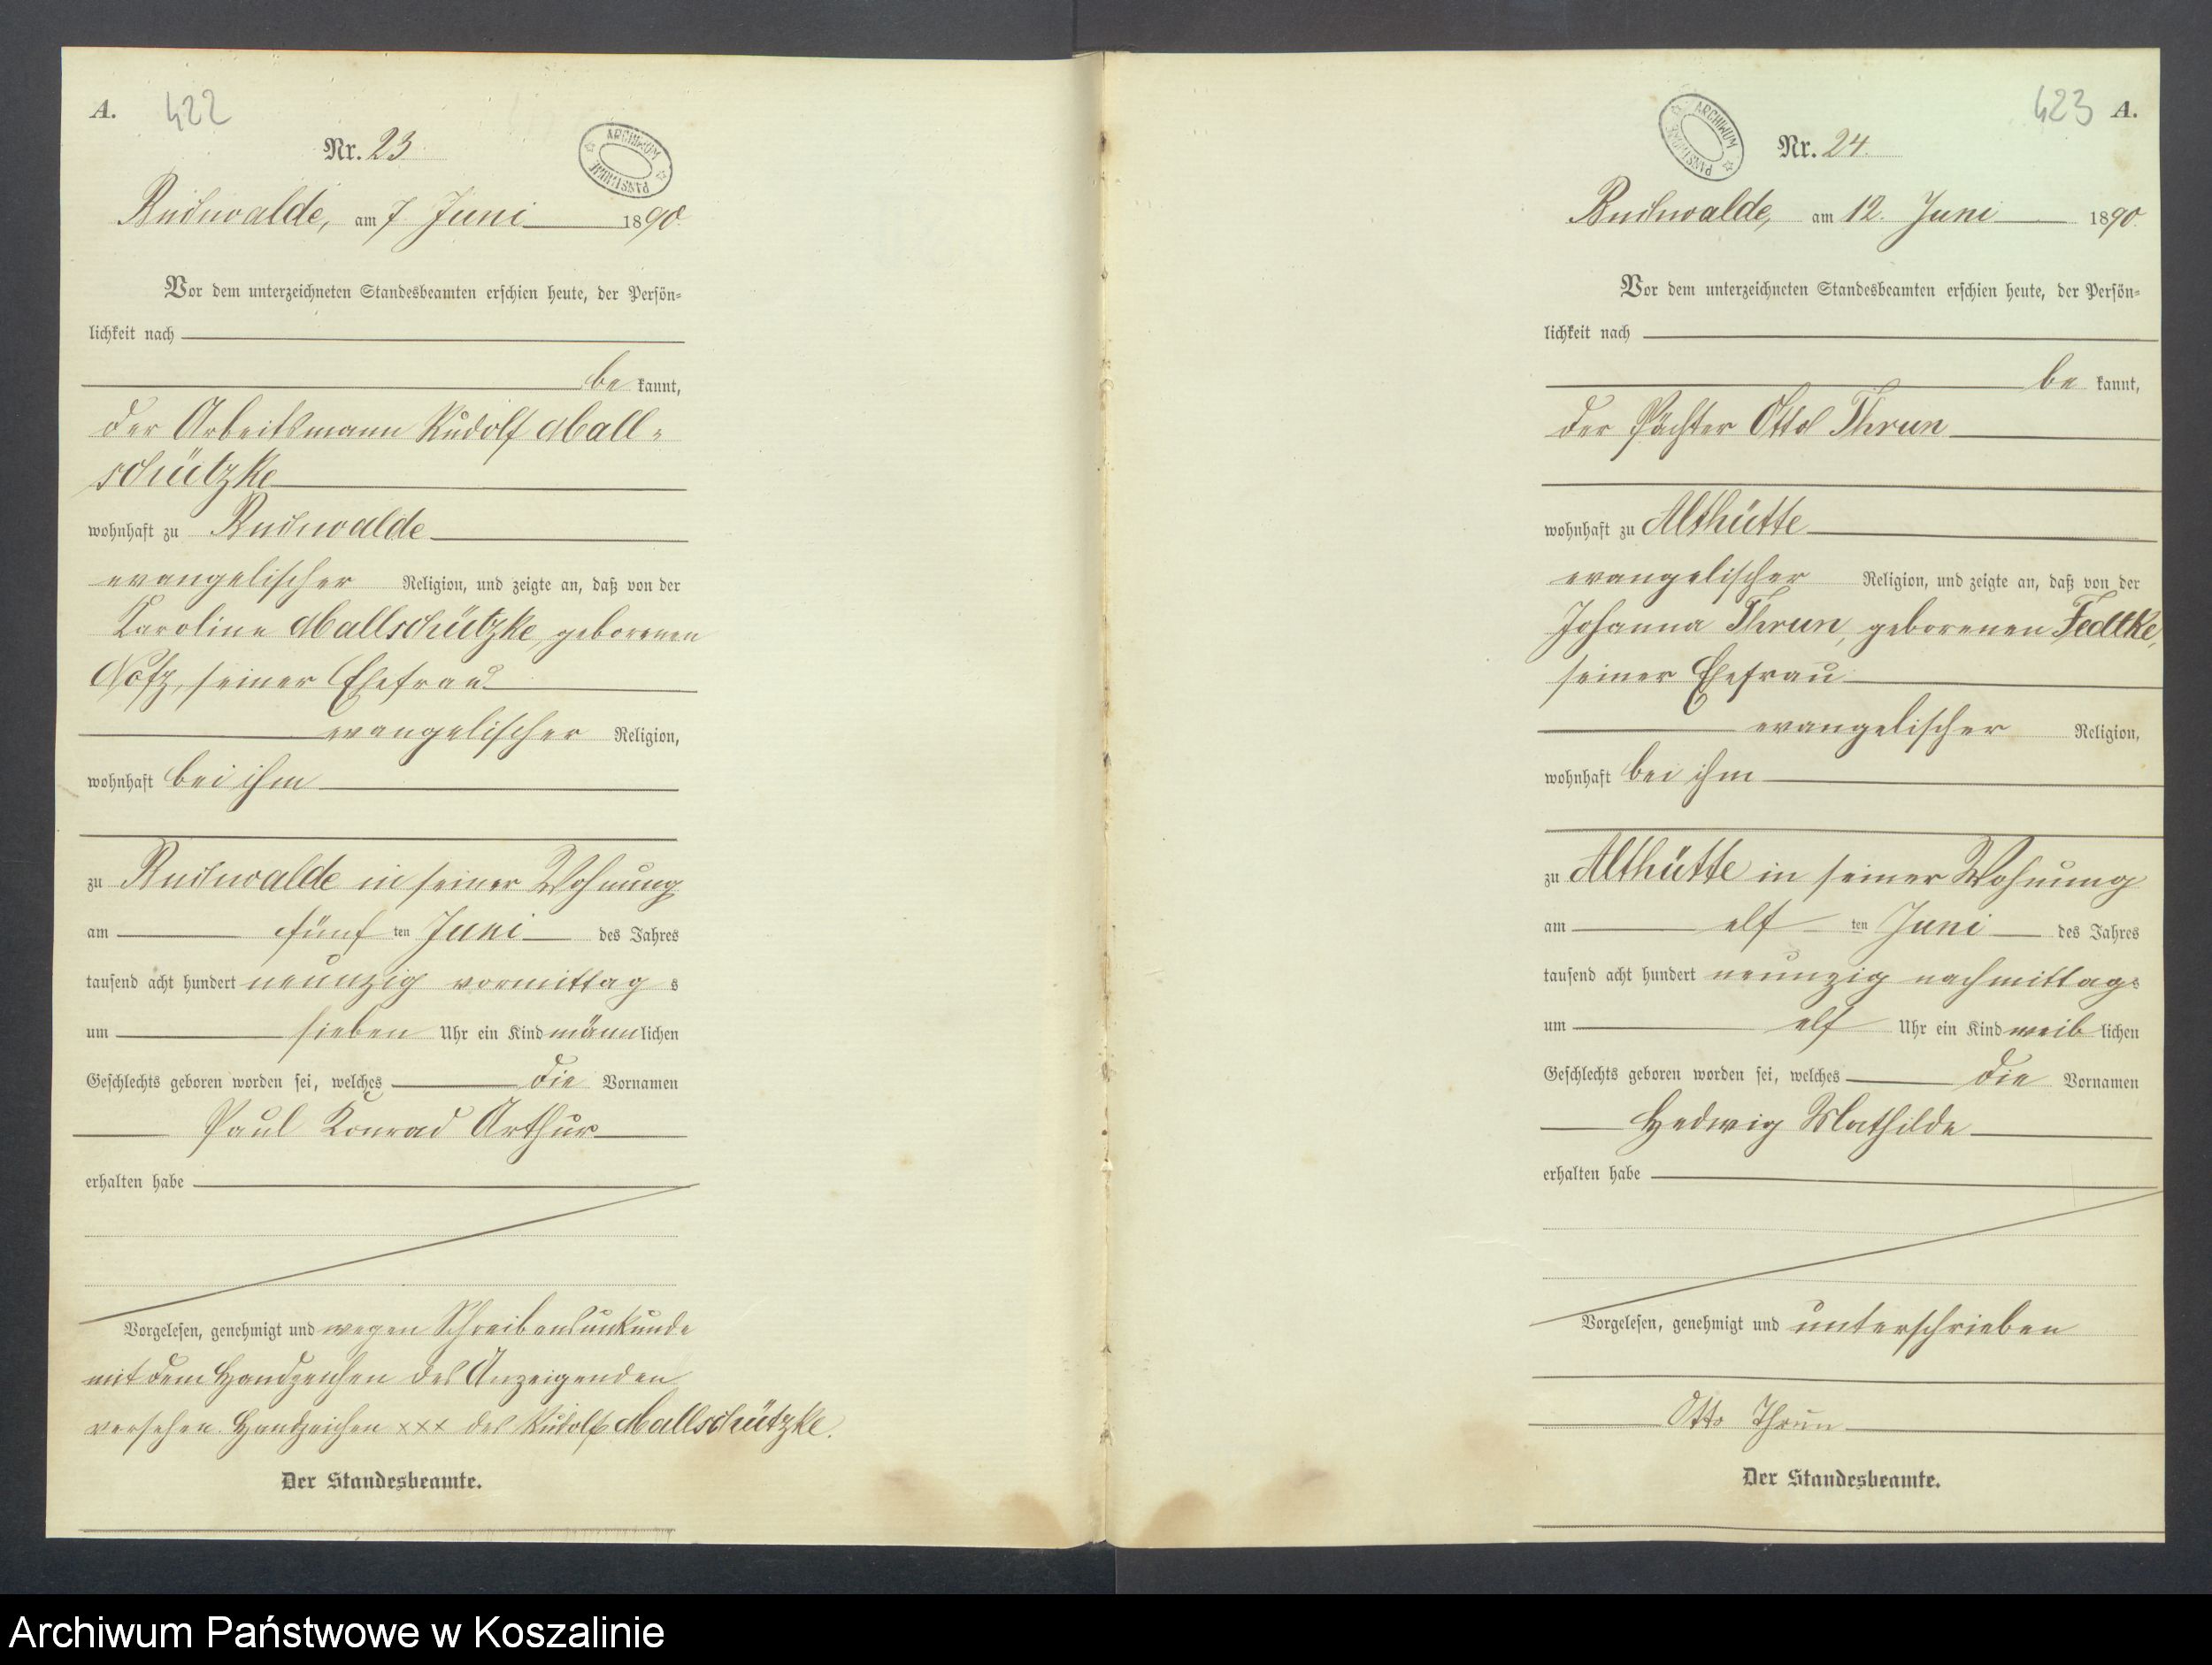 A. 422
ARCHIWUM PAŃSTWOWE
Nr. 23
Buchwalde, am 7. Juni 1890.
Vor dem unterzeichneten Standesbeamten erschien heute, der Persön-
lichkeit nach
be kannt,
der Arbeitsmann Rudolf Mall-
schützke
wohnhaft zu Buchwalde
evangelischer Religion, und zeigte an, daß von der
Karoline Mallschützke, geborenen
seiner Ehefrau
evangelischer Religion,
wohnhaft bei ihm
zu Buchwalde in seiner Wohnung
am fünf ten Juni des Jahres
tausend acht hundert neunzig vormittag s
um sieben Uhr ein Kind männlichen
Geschlechts geboren worden sei, welches die Vornamen
Paul Konrad Arthur
erhalten habe
Vorgelesen, genehmigt und wegen Schreibensunkunde
mit dem Handzeichen des Anzeigenden
versehen. Handzeichen xxx des Rudolf Mallschützke.
Der Standesbeamte.
423 A.
ARCHIWUM PAŃSTWOWE
Nr. 24.
Buchwalde, am 12. Juni 1890.
Vor dem unterzeichneten Standesbeamten erschien heute, der Persön-
lichkeit nach
be kannt,
der Pächter Otto Thrun
wohnhaft zu Althütte
evangelischer Religion, und zeigte an, daß von der
Johanna Thrun, geborenen Fedtke,
seiner Ehefrau
evangelischer Religion,
wohnhaft bei ihm
zu Althütte in seiner Wohnung
am elf ten Juni des Jahres
tausend acht hundert neunzig nachmittags
um elf Uhr ein Kind weib lichen
Geschlechts geboren worden sei, welches die Vornamen
Hedwig Mathilde
erhalten habe
Vorgelesen, genehmigt und unterschrieben
Otto Thrun
Der Standesbeamte.
Archiwum Państwowe w Koszalinie